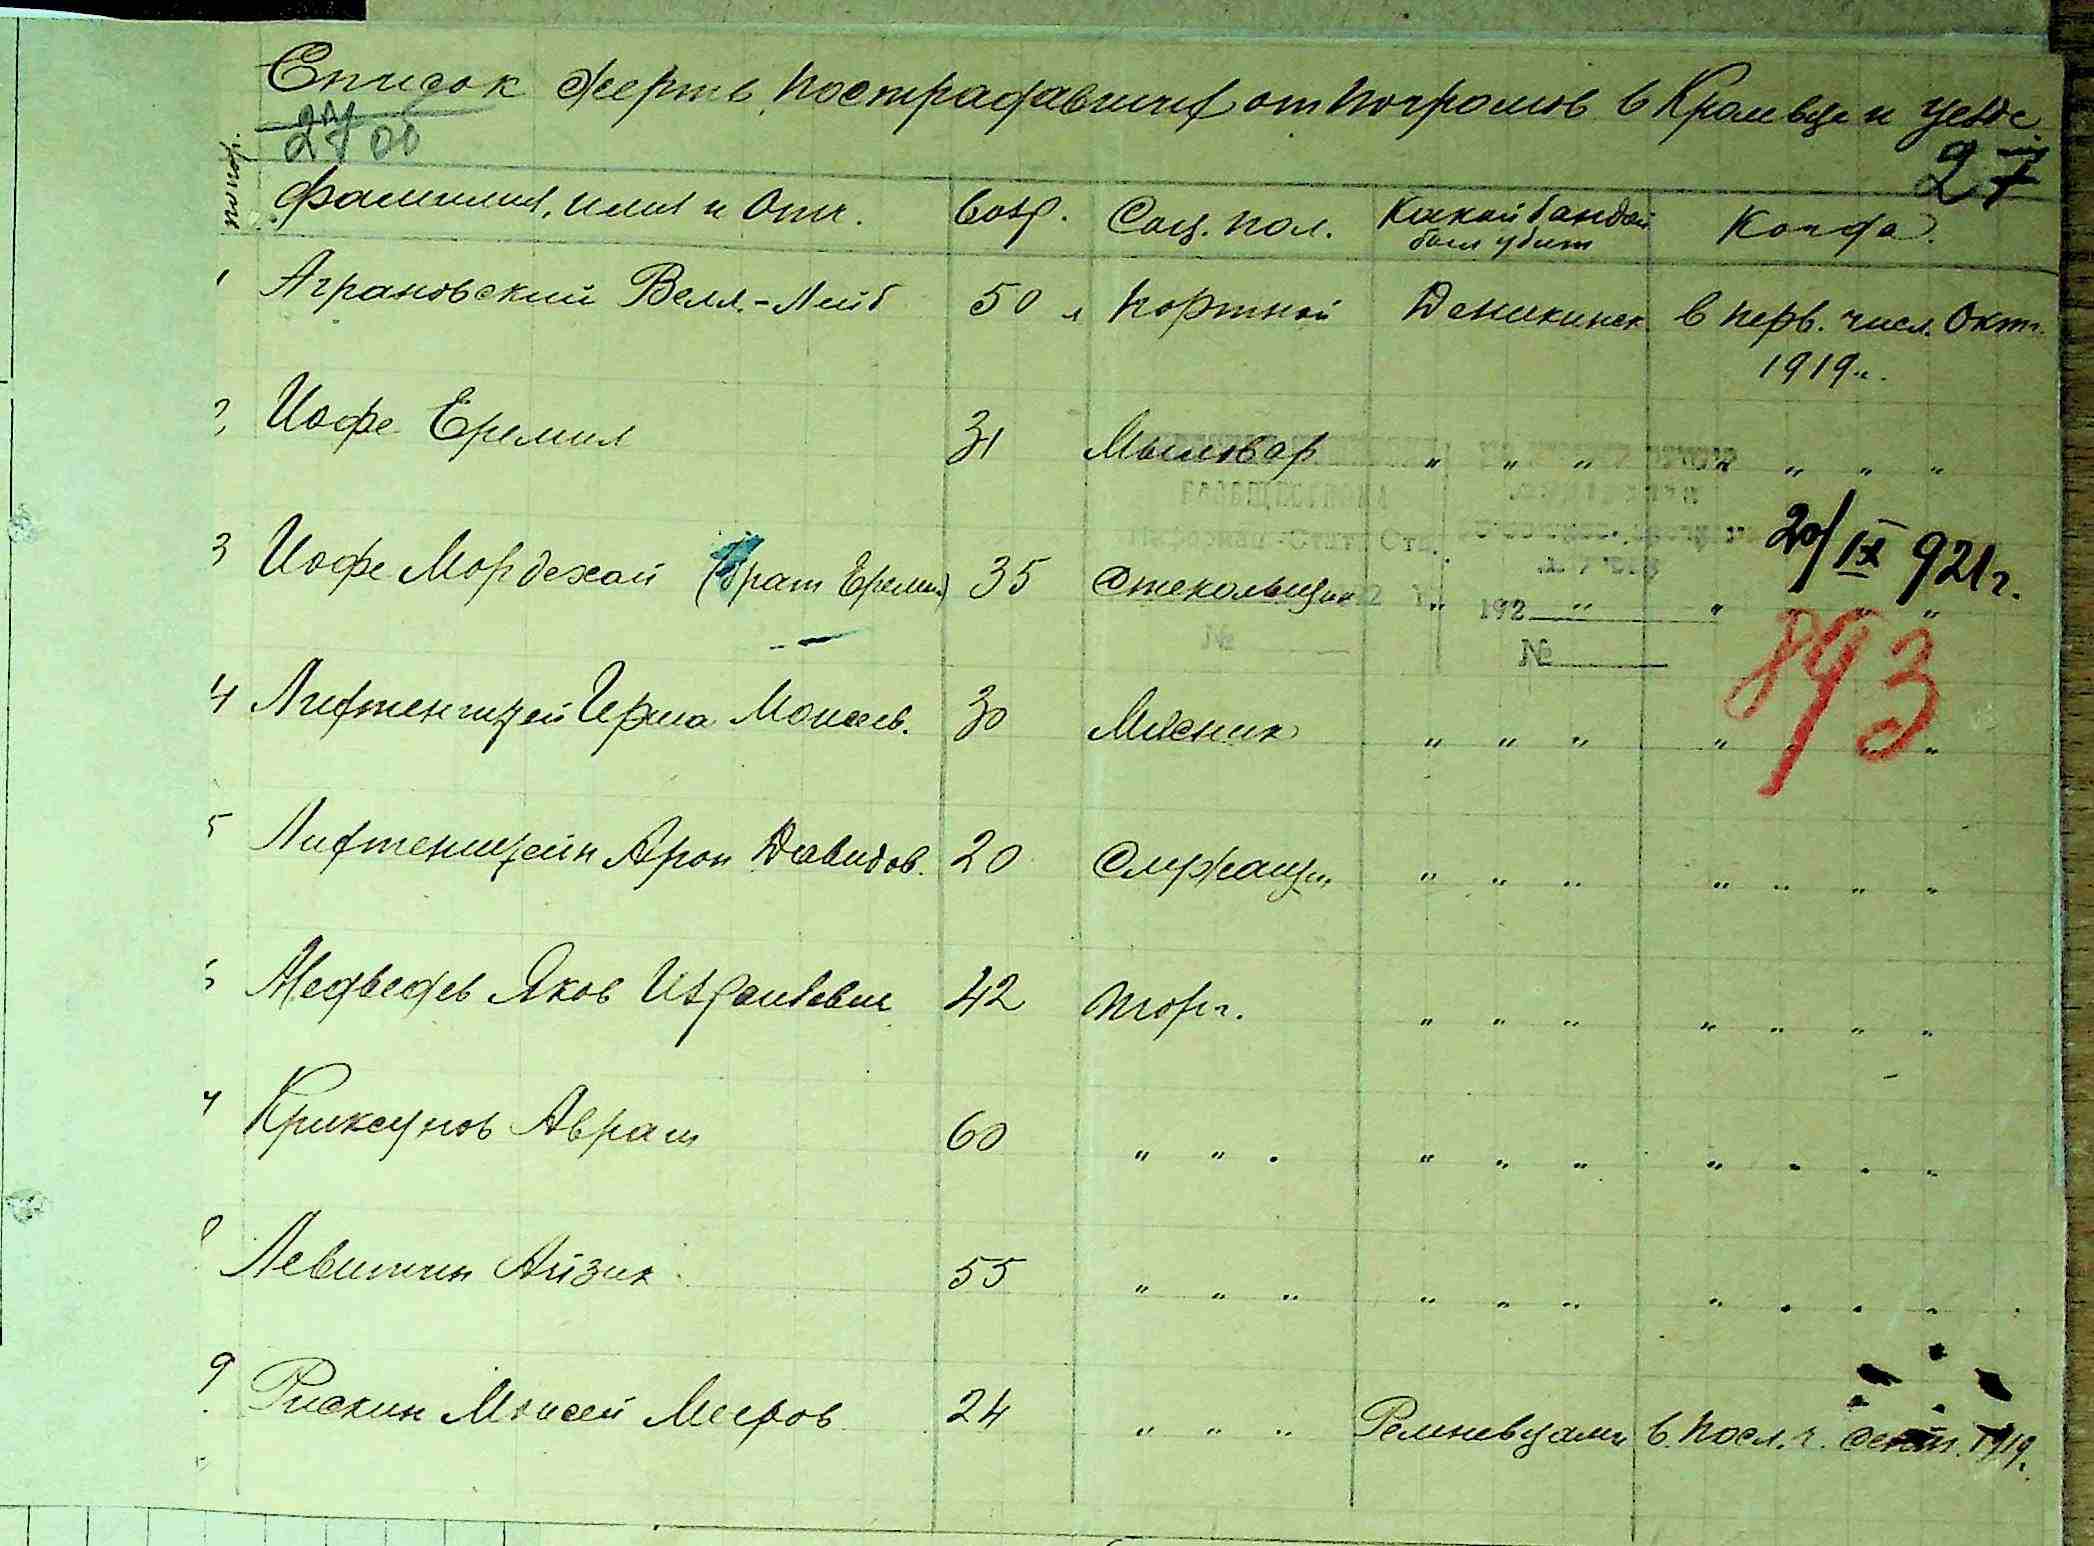 Список жертв пострадавших от погромов в Кролевце и уезде.
27 00
27
по пор. Фамилия, имя и Отч. Возр. Соц. пол. Какой бандой был убит Когда.
1 Аграновский Велл.-Лейб 50 л Портной Деникинск в перв. числ. Окт. 1919 г.
2 Иофе Еремия 31 Мыловар " " " " " " "
20/IX 921 г.
3 Иофе Мордехай (брат Еремии) 35 Стекольщик " " " " "
192
№ №
893
4 Лифтенштейн Моисеев. 30 Мясник " " " " " " "
5 Лифтенштейн Арон Давидов. 20 Служащий " " " " " " "
6 Медведев Яков Израилевич 42 торг. " " " " " " "
7 Криксунов Аврам 60 " " " " " " " " " "
8 Левитин Айзик 55 " " " " " " " " " "
9 Рискин Моисей Мееров 24 " " " в посл. ч. сент. 1919 г.